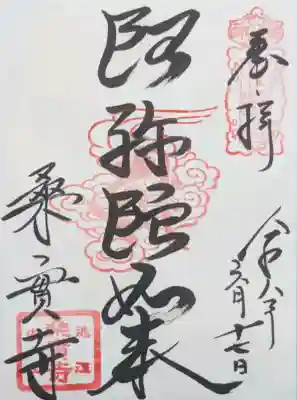 奉拝
阿弥陀如来
桑實寺
令和
年
月十七日